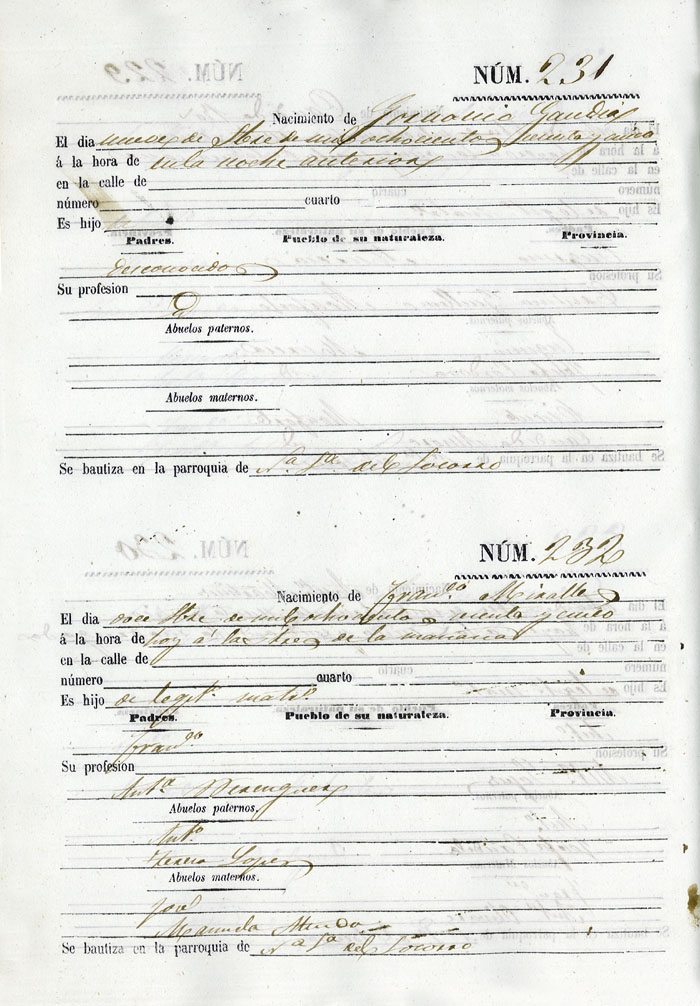 NÚM. 231
Nacimiento de Gandia
El dia nueve de Sbre de mil ochocientos veinte y cinco
á la hora de en la noche anterior
en la calle de
número cuarto
Es hijo
Padres. Pueblo de su naturaleza. Provincia.
desconocidos
Su profesion
Abuelos paternos.
Abuelos maternos.
Se bautiza en la parroquia de Na Sa del Socorro
NÚM. 232
Nacimiento de Franco Miralles
El dia doce Sbre de mil ochocientos veinte y cinco
á la hora de hoy á las tres de la mañana
en la calle de
número cuarto
Es hijo de legito matro
Padres. Pueblo de su naturaleza. Provincia.
Franco
Su profesión
Anta Berenguer
Abuelos paternos.
Anto
Teresa Lopez
Abuelos maternos.
José
Manuela
Se bautiza en la parroquia de Na Sa del Socorro